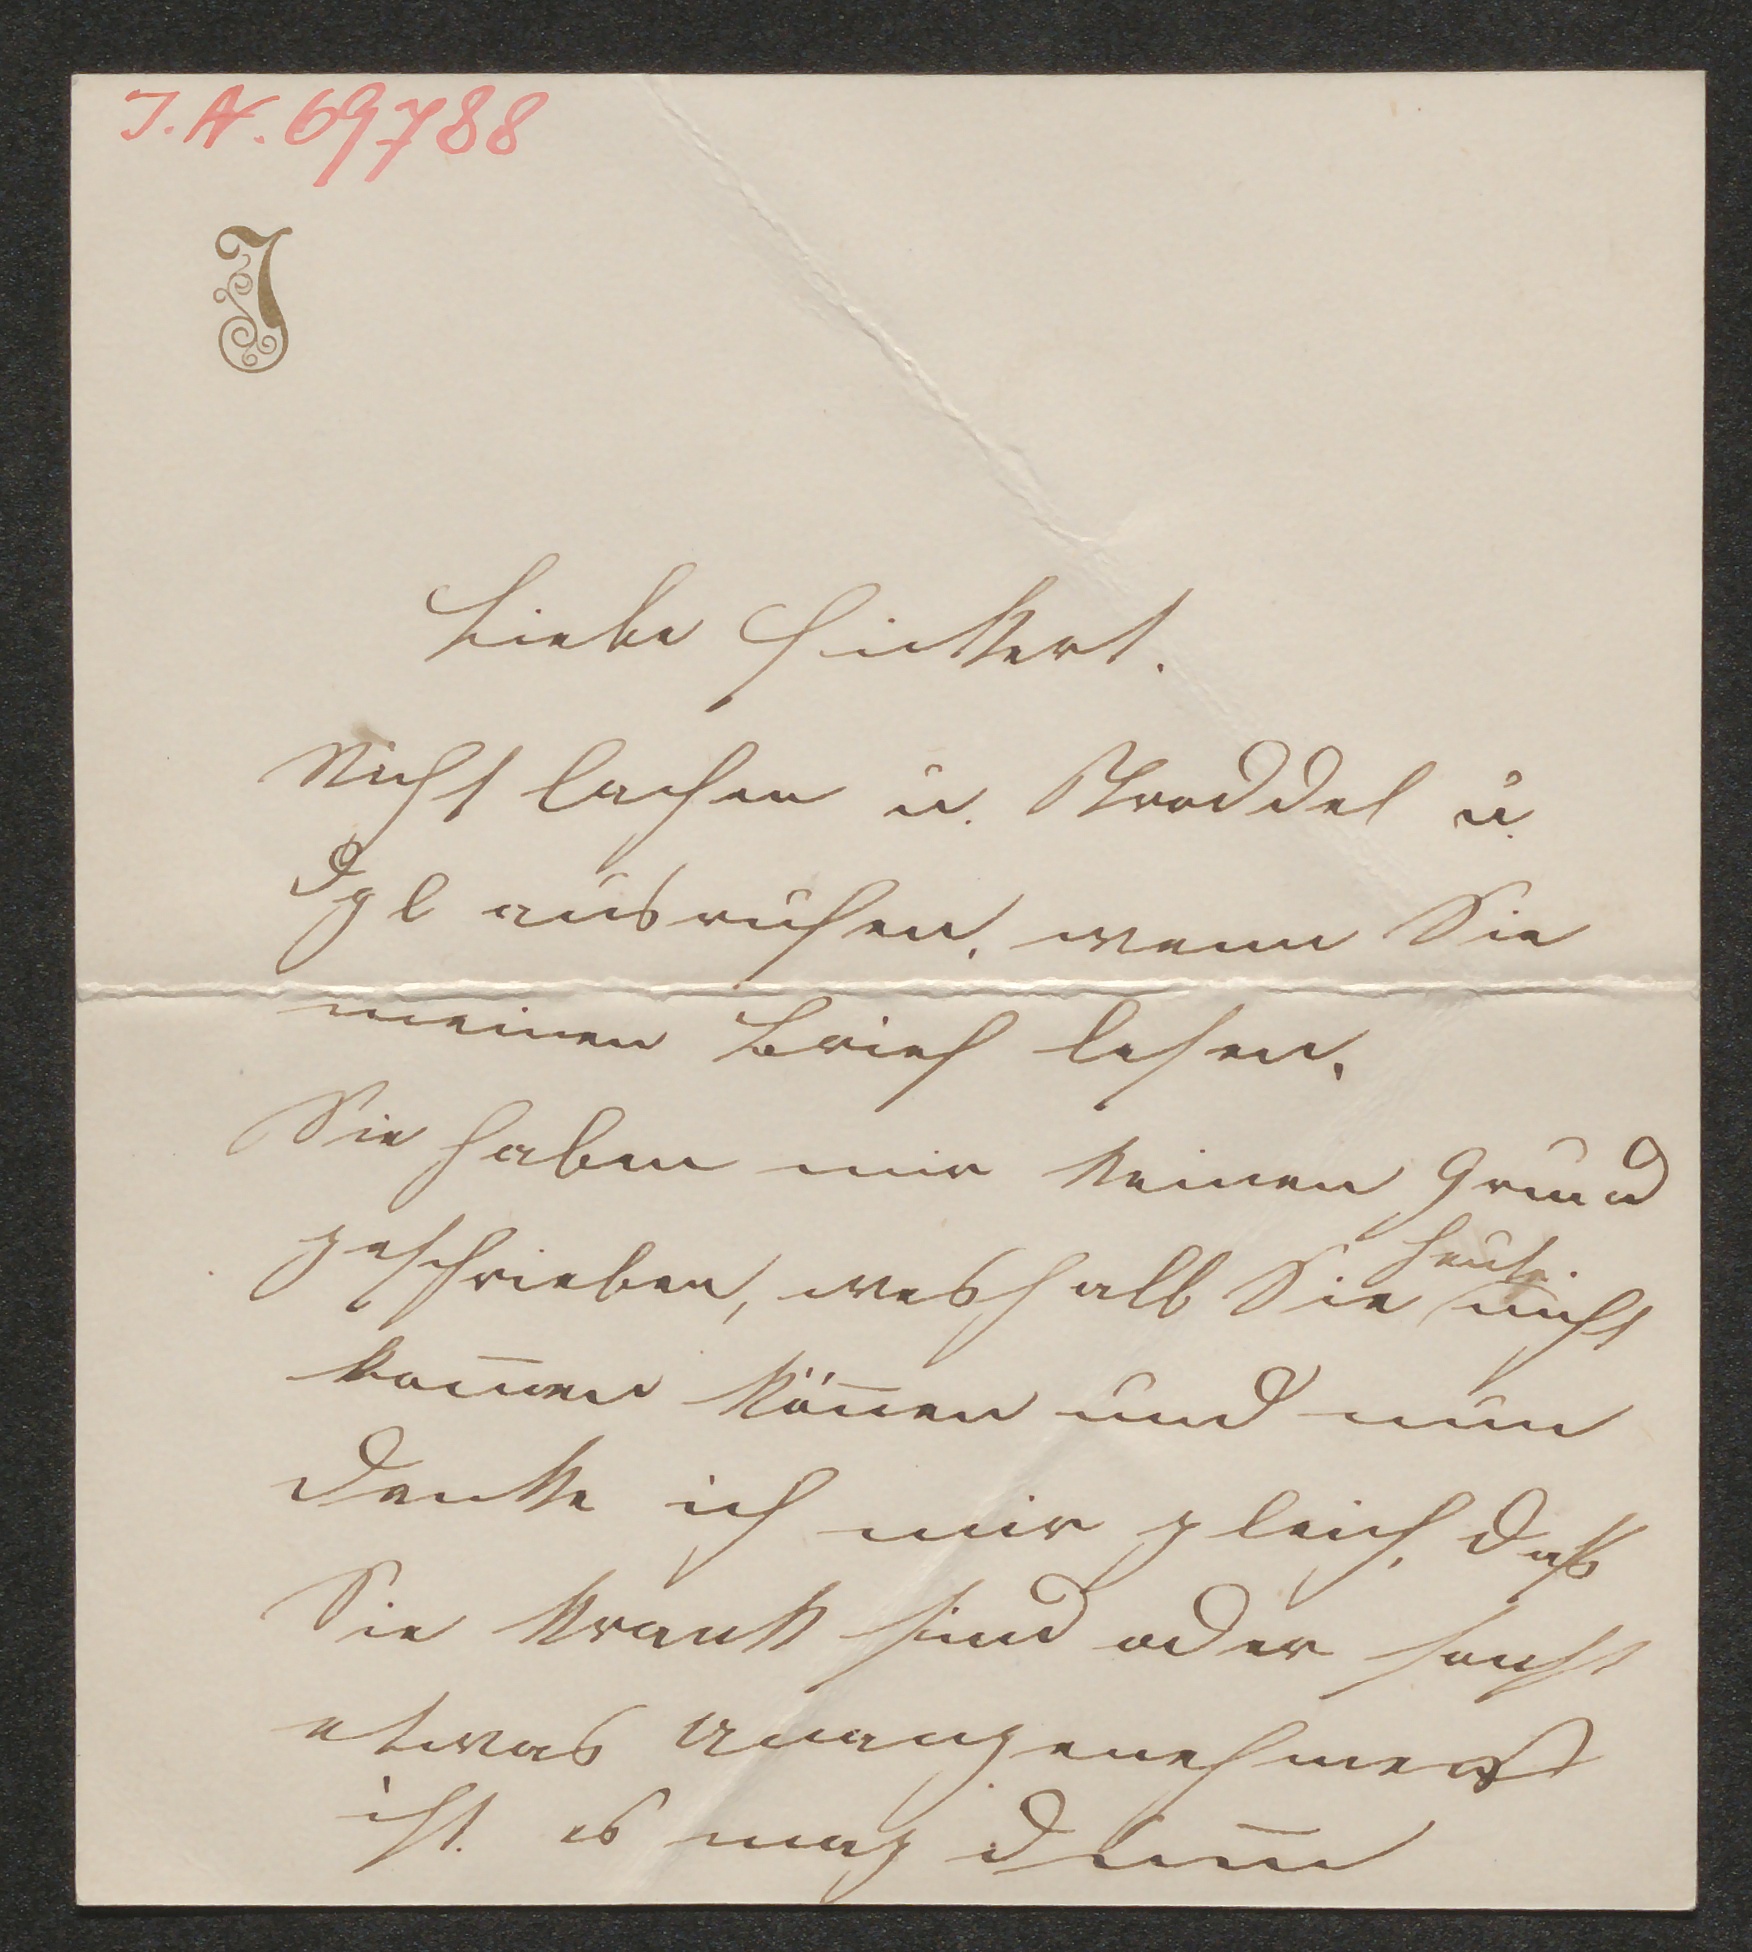 I.N. 69788
J
Liebe Fickert.
Nicht lachen u. Troddel u.
dgl ausrufen, wenn Sie
meinen Brief lesen.
Sie haben mir keinen Grund
geschrieben, weshalb Sie heute nicht
kom̅en kön̅en und nun
denke ich mir gleich, daß
Sie krank sind oder sonst
etwas unangenehmes
ist. es mag dum̅